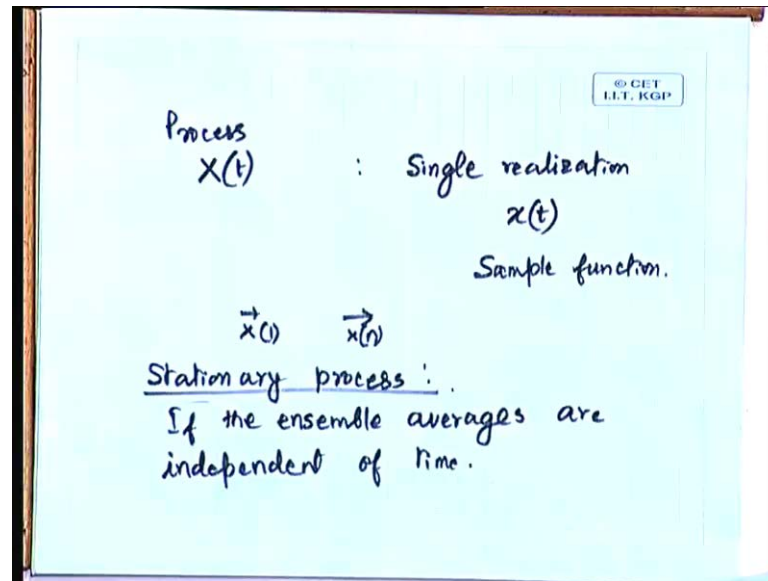 © CET
I.I.T. KGP
Process
X(t) : Single realization
x(t)
Sample function.
x⃗(1) x⃗(n)
Stationary process :.
If the ensemble averages are
independent of time.